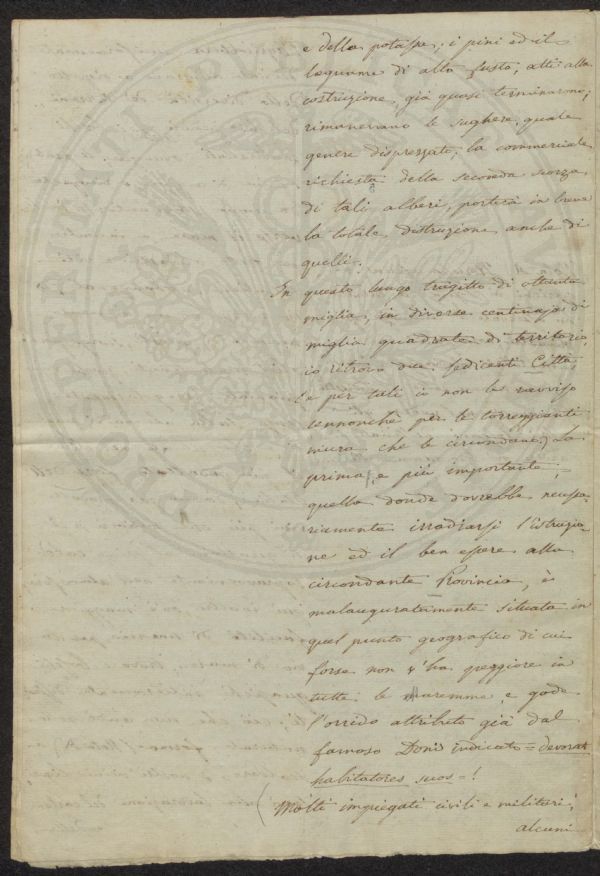 e della potassa; i pini ed il
legname di alto fusto, atti alla
costruzione, già quasi terminarono;
rimanevano le sughere, quale
genere disprezzato; la commerciale
richiesta della seconda scorza
di tali alberi, porterà in breve
la totale distruzione anche di
quelli.
In questo lungo tragitto di ottanta
miglia, in diverse centinaja di
miglia quadrate di territorio,
io ritrovo due sedicenti Città
(e per tali io non le ravviso
sennonchè per le torreggianti
mura che le circondano.) La
prima, e più importante,
quella donde dovrebbe necessa-
riamente irradiarsi l'Istruzio-
ne ed il ben essere alla
circondante Provincia, è
malauguratamente situata in
quel punto geografico di cui
forse non v'ha peggiore in
tutte le Maremme, e gode
l'orrido attributo già dal
famoso indicato = devorat
habitatores suos = !
(Molti impiegati civili e militari;
alcuni